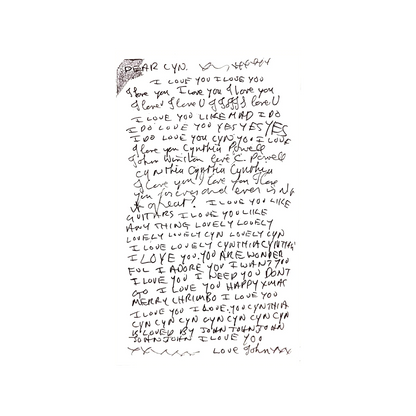 DEAR CYN.
I LOVE YOU I LOVE YOU
I love you I love you I love you
I love U
I LOVE YOU LIKE MAD I DO
I DO LOVE YOU YES YES YES
I DO LOVE YOU CYN YOU I LOVE
I love you Cynthia Powell
John Winston love C. Powell
Cynthia Cynthia Cynthia
I love you I love you I love
you forever and ever isn't
it great? I LOVE YOU LIKE
GUITARS I LOVE YOU LIKE
ANY THING LOVELY LOVELY
LOVELY LOVELY CYN LOVELY CYN
I LOVE LOVELY CYNTHIA CYNTHIA
I LOVE YOU. YOU ARE WONDER
FUL I ADORE YOU I WANT YOU
I LOVE YOU I NEED YOU DONT
GO I LOVE YOU HAPPY XMAS
MERRY CHRIMBO I LOVE YOU
I LOVE YOU I LOVE. YOU CYNTHIA
CYN CYN CYN CYN CYN CYN CYN
IS LOVED BY JOHN JOHN JOHN
JOHN JOHN I LOVE YOU
LOVE John XXX